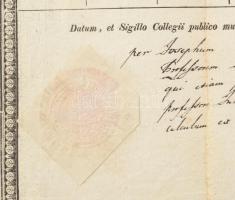 Datum, et Sigillo Collegii publico mu
per Josephum
Professorum
qui etiam
professor
calculum ex